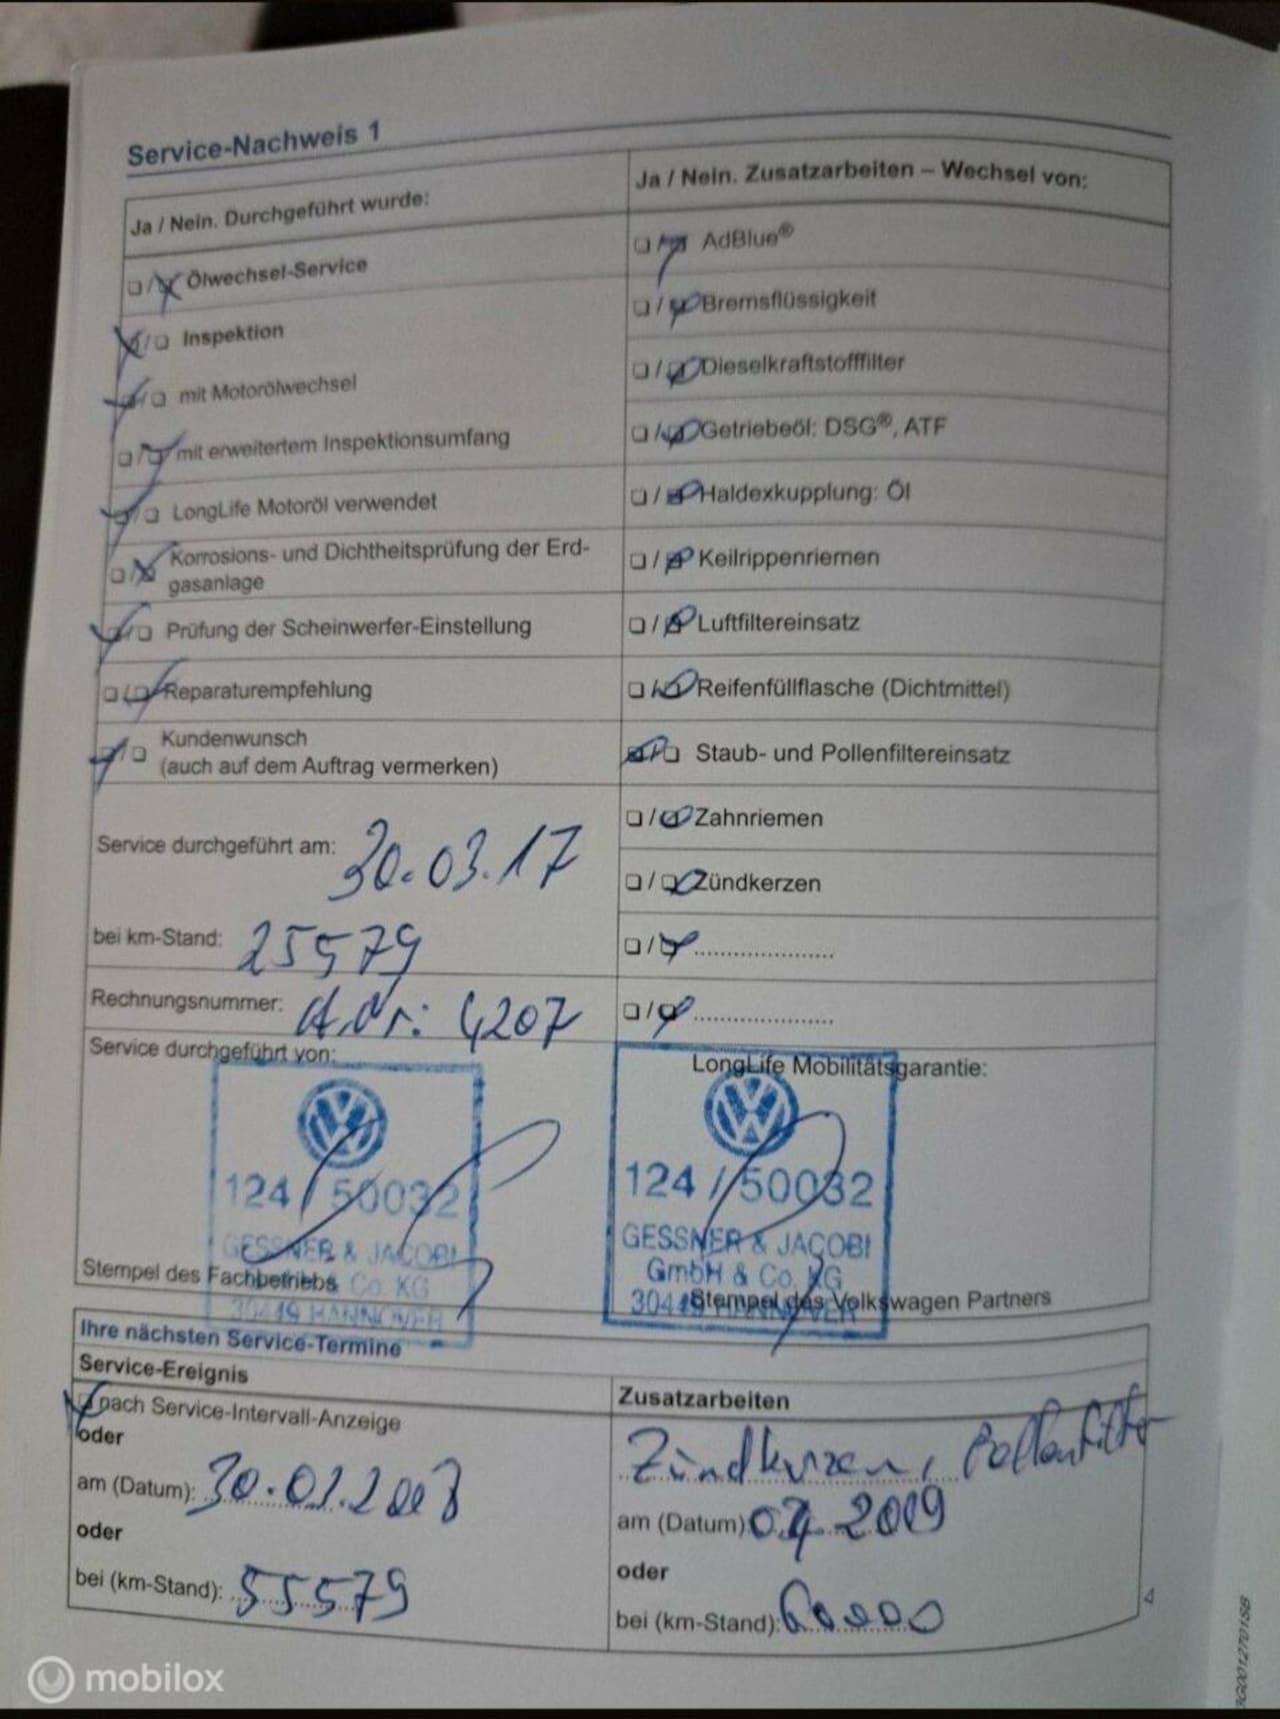 Service-Nachweis 1
Ja / Nein. Durchgeführt wurde:
Ölwechsel-Service
Inspektion
mit Motorölwechsel
mit erweitertem Inspektionsumfang
LongLife Motoröl verwendet
Korrosions- und Dichtheitsprüfung der Erd-
gasanlage
Prüfung der Scheinwerfer-Einstellung
Reparaturempfehlung
Kundenwunsch
(auch auf dem Auftrag vermerken)
Service durchgeführt am: 30.03.17
bei km-Stand: 25579
Rechnungsnummer: A.Nr: 4207
Service durchgeführt von:
124 / 50032
GESSNER & JACOBI
Co. KG
30449 HANNOVER
Stempel des Fachbetriebs
Ja / Nein. Zusatzarbeiten – Wechsel von:
AdBlue®
Bremsflüssigkeit
Dieselkraftstofffilter
Getriebeöl: DSG®, ATF
Haldexkupplung: Öl
Keilrippenriemen
Luftfiltereinsatz
Reifenfüllflasche (Dichtmittel)
Staub- und Pollenfiltereinsatz
Zahnriemen
Zündkerzen
LongLife Mobilitätsgarantie:
124 / 50032
GESSNER & JACOBI
GmbH & Co. KG
30449 HANNOVER
Stempel des Volkswagen Partners
Ihre nächsten Service-Termine
Service-Ereignis
nach Service-Intervall-Anzeige
oder
am (Datum):
oder
bei (km-Stand): 55579
Zusatzarbeiten
Zündkerzen, Pollenfilter
am (Datum) 2019
oder
bei (km-Stand): 60000
4
3G0012701SB
mobilox